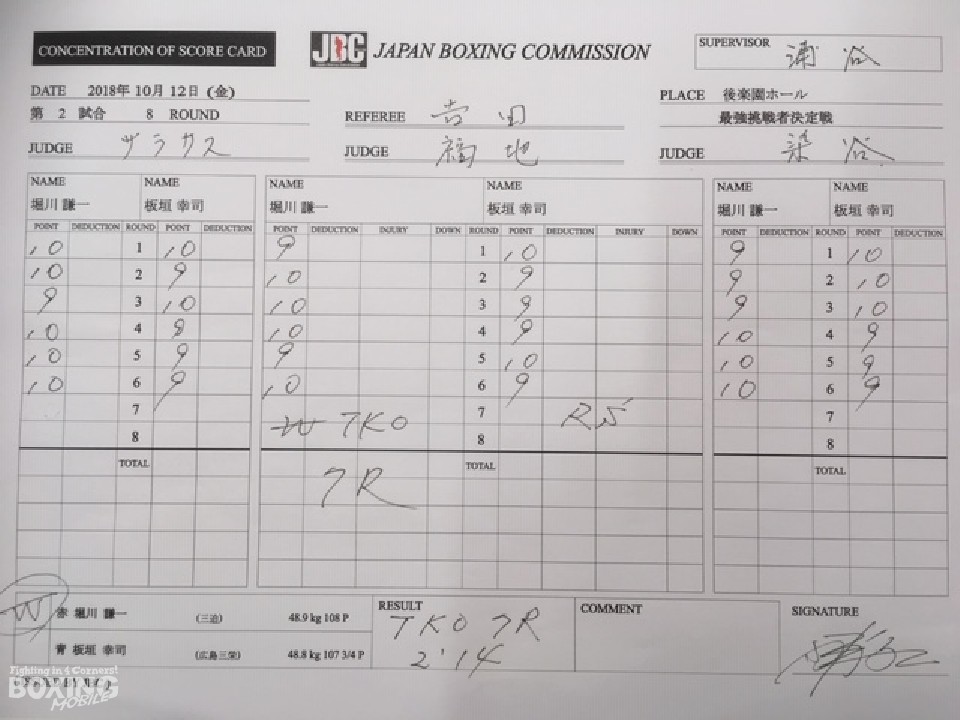 CONCENTRATION OF SCORE CARD
JBC JAPAN BOXING COMMISSION
SUPERVISOR 浦谷
DATE 2018年10月12日 (金)
PLACE 後楽園ホール
第 2 試合 8 ROUND
REFEREE 吉田
最強挑戦者決定戦
JUDGE サラカス
JUDGE 福地
JUDGE 染谷
NAME NAME NAME NAME NAME NAME
堀川 謙一 板垣 幸司 堀川 謙一 板垣 幸司 堀川 謙一 板垣 幸司
POINT DEDUCTION ROUND POINT DEDUCTION POINT DEDUCTION INJURY DOWN ROUND POINT DEDUCTION INJURY DOWN POINT DEDUCTION ROUND POINT DEDUCTION
10 1 10 9 1 10 9 1 10
10 2 9 10 2 9 9 2 10
9 3 10 10 3 9 9 3 10
10 4 9 10 4 9 10 4 9
10 5 9 9 5 10 10 5 9
10 6 9 10 6 9 10 6 9
7 TKO 7 7
8 8 8
TOTAL TOTAL TOTAL
7R
W 赤 堀川 謙一 (三迫) 48.9 kg 108 P
青 板垣 幸司 (広島三栄) 48.8 kg 107 3/4 P
RESULT
TKO 7R
2'14
COMMENT
SIGNATURE
Fighting in 4 Corners!
BOXING
MOBILE